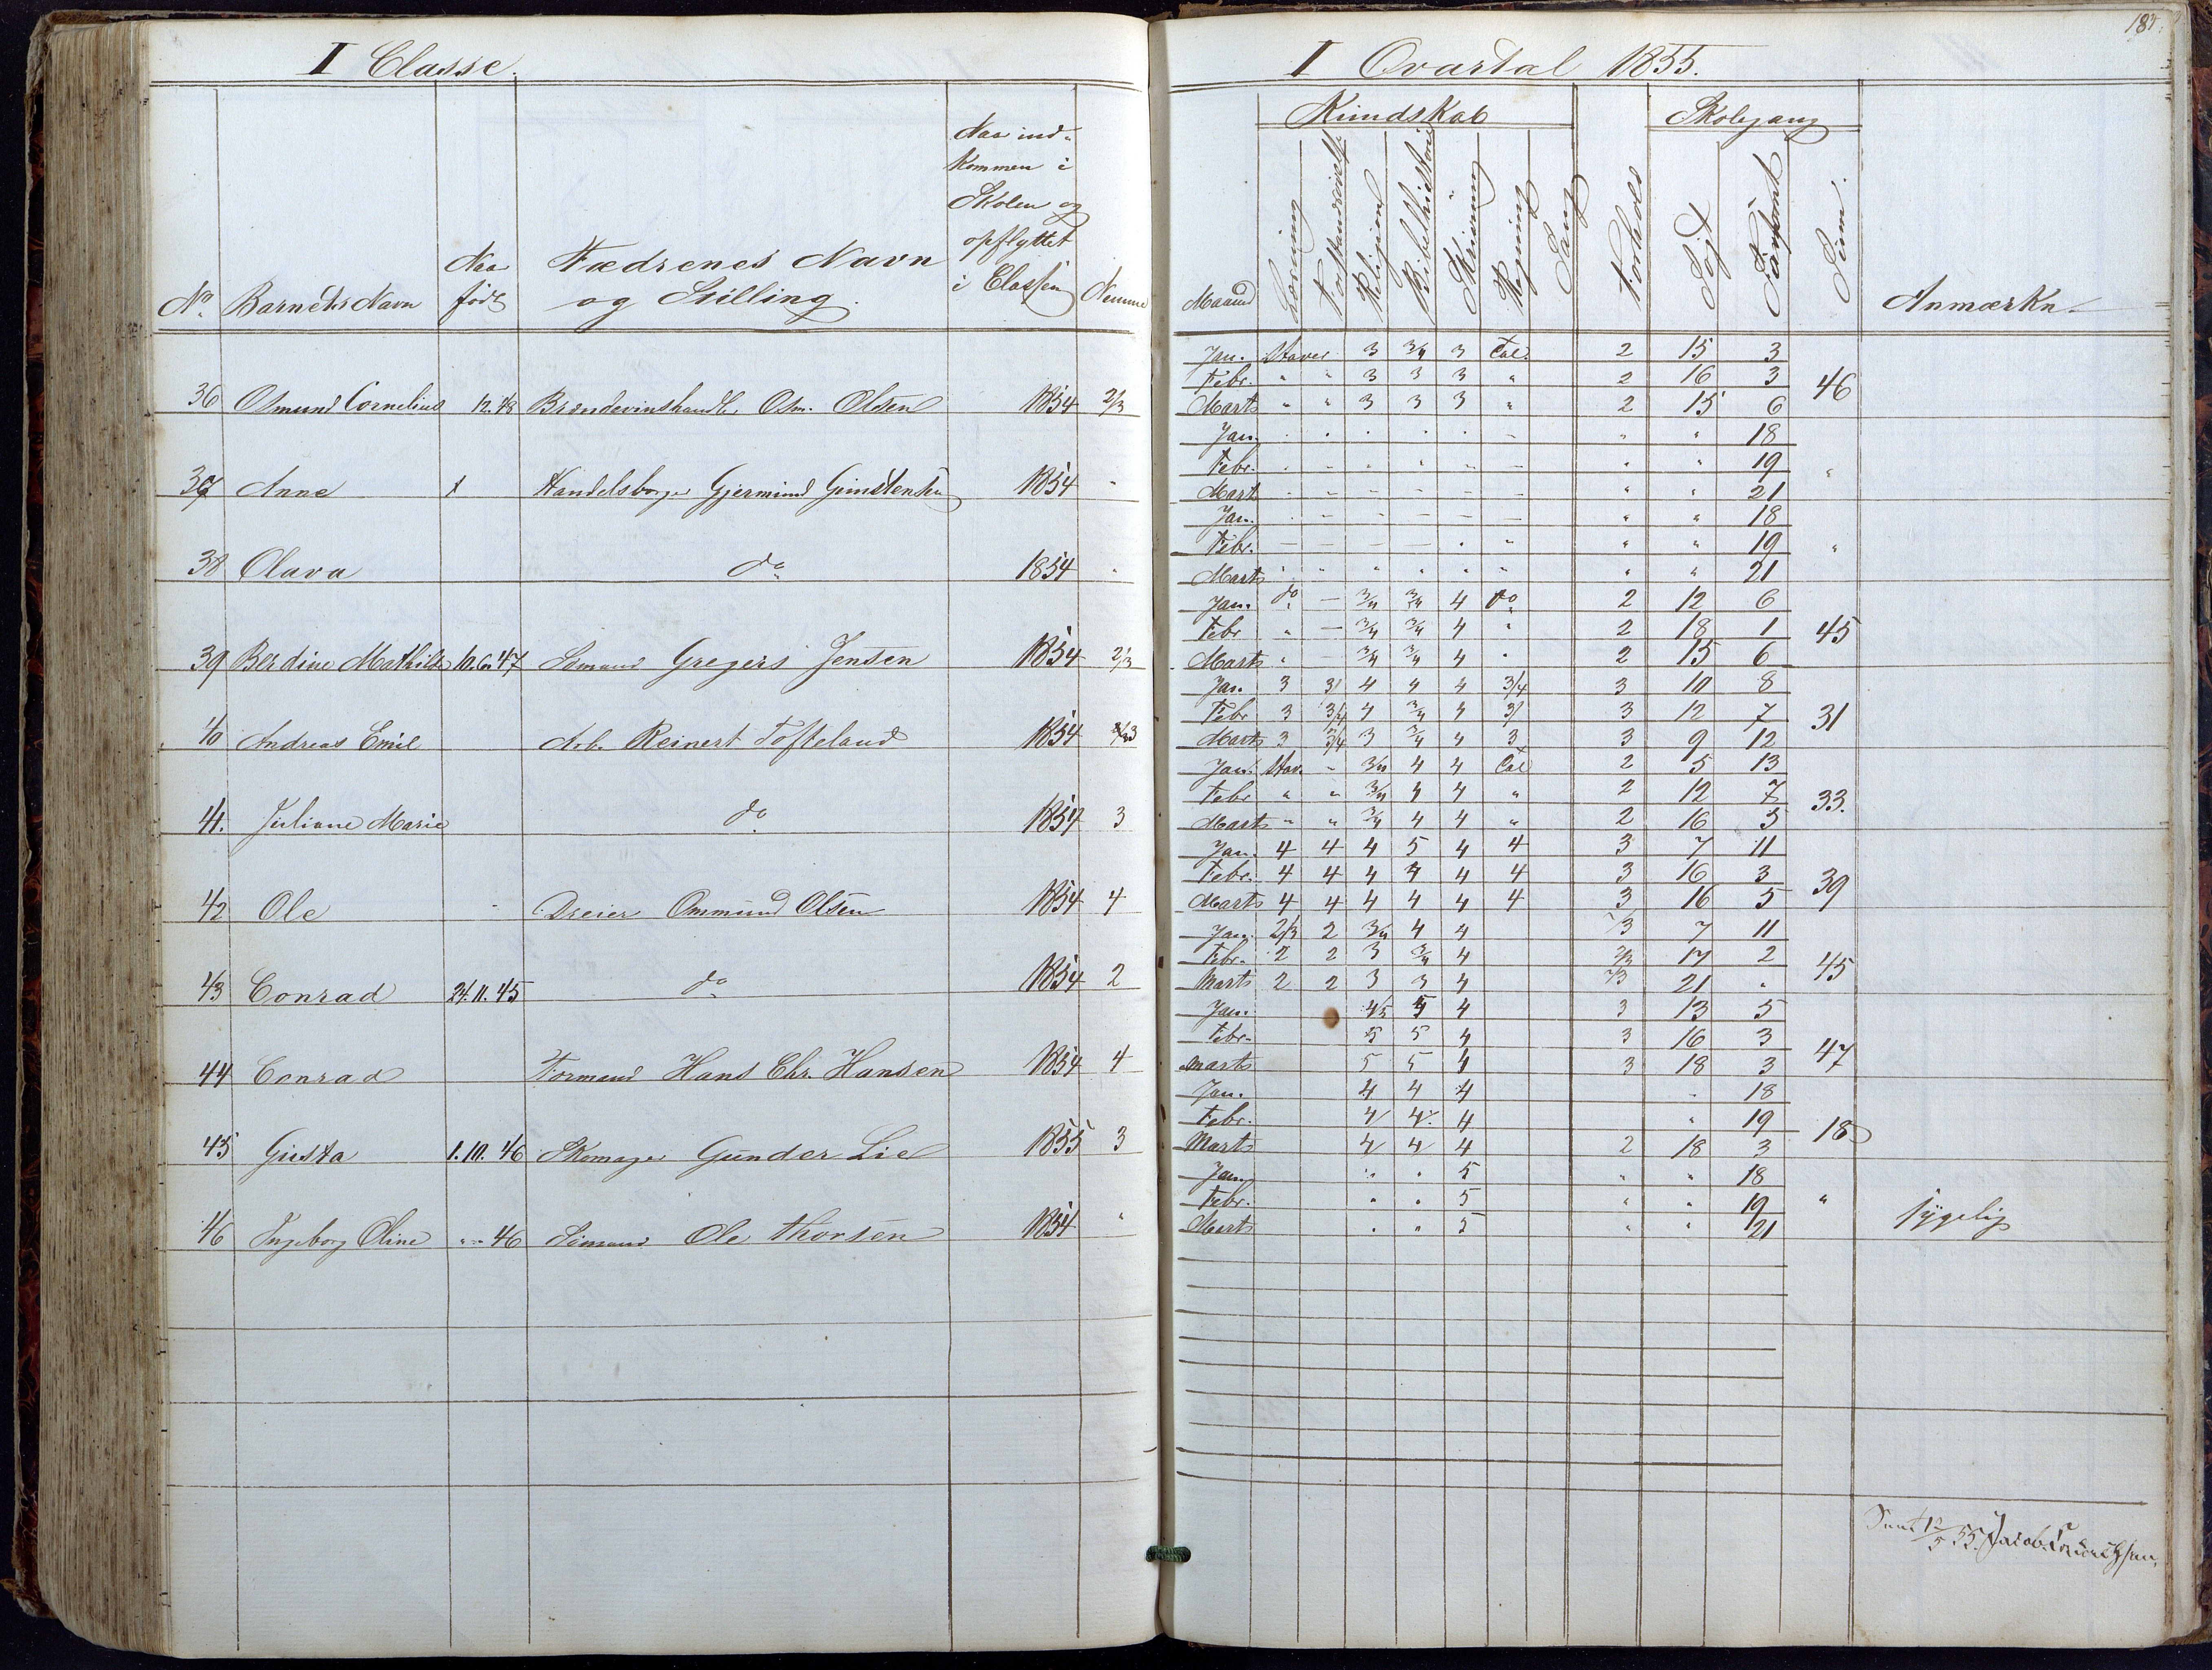 I Classe.
No. Barnets Navn Naar født Fædrenes Navn og Stilling. Naar ind-kommen i Skolen og opflyttet i Classen Nemme
36 Osmund Cornelius 12.48 Brændevinshandl. Osm. Olsen 1854 2/3
37 Anne Handelsborger Gjermund 1854 "
38 Olava do 1854 "
39 Berdine Mathilde 10.6.47 Sømand Gregers Jensen 1854 2/3
40 Andreas Emil Arb. Reinert Tofteland 1854
41. Juliane Marie do 1854 3
42 Ole Dreier Ommund Olsen 1854 4
43 Conrad 24.11.45 do 1854 2
44 Conrad Formand Hans Chr. Hansen 1854 4
45 Gusta 1.10.46 Skomager Gunder Lie 1855 3
46 Ingeborg Oline " " 46 Sømand Ole Thorsen 1854 "
I Qvartal 1855.
Kundskab Skolegang
Maaned Læsning Forstandsøvelse Religion Bibelhistorie Skrivning Regning Sang Forhold Søgt Forsømt Sum. Anmærkn.
Jan. Staver 3 3/4 3 Tal. 2 15 3
Febr. " " 3 3 3 " 2 16 3 46
Marts " " 3 3 3 " 2 15 6
Jan. " " 18
Febr. " " 19 "
Marts " " 21
Jan. " " 18
Febr. " " 19 "
Marts " " " " " " " " 21
Jan. do – 3/4 3/4 4 do 2 12 6
Febr " – 3/4 3/4 4 " 2 18 1 45
Marts " – 3/4 3/4 4 " 2 15 6
Jan. 3 3 4 4 4 3/4 3 10 8
Febr 3 3/4 4 3/4 4 3/ 3 12 7 31
Marts 3 3/4 3 3/4 4 3 3 9 12
Jan. Stav. – 3/4 4 4 Tal 2 5 13
Febr " " 3/4 4 4 " 2 12 7 33.
Marts " " 3/4 4 4 " 2 16 5
Jan. 4 4 4 5 4 4 3 7 11
Febr. 4 4 4 4 4 4 3 16 3 39
Marts 4 4 4 4 4 4 3 16 5
Jan. 2/3 2 3/4 4 4 3 7 11
Febr. 2 2 3 3/4 4 2/3 17 2 45
Marts 2 2 3 3 4 2/3 21 "
Jan. 4/5 5 4 3 13 5
Febr. 5 5 4 3 16 3 47
Marts 5 5 4 3 18 3
Jan. 4 4 4 " 18
Febr. 4 4 4 " 19 18
Marts 4 4 4 2 18 3
Jan. " " 5 " " 18
Febr. " " 5 " " 19 "
Marts " " 5 " " 21 sygelig
12/5 55. Jacob